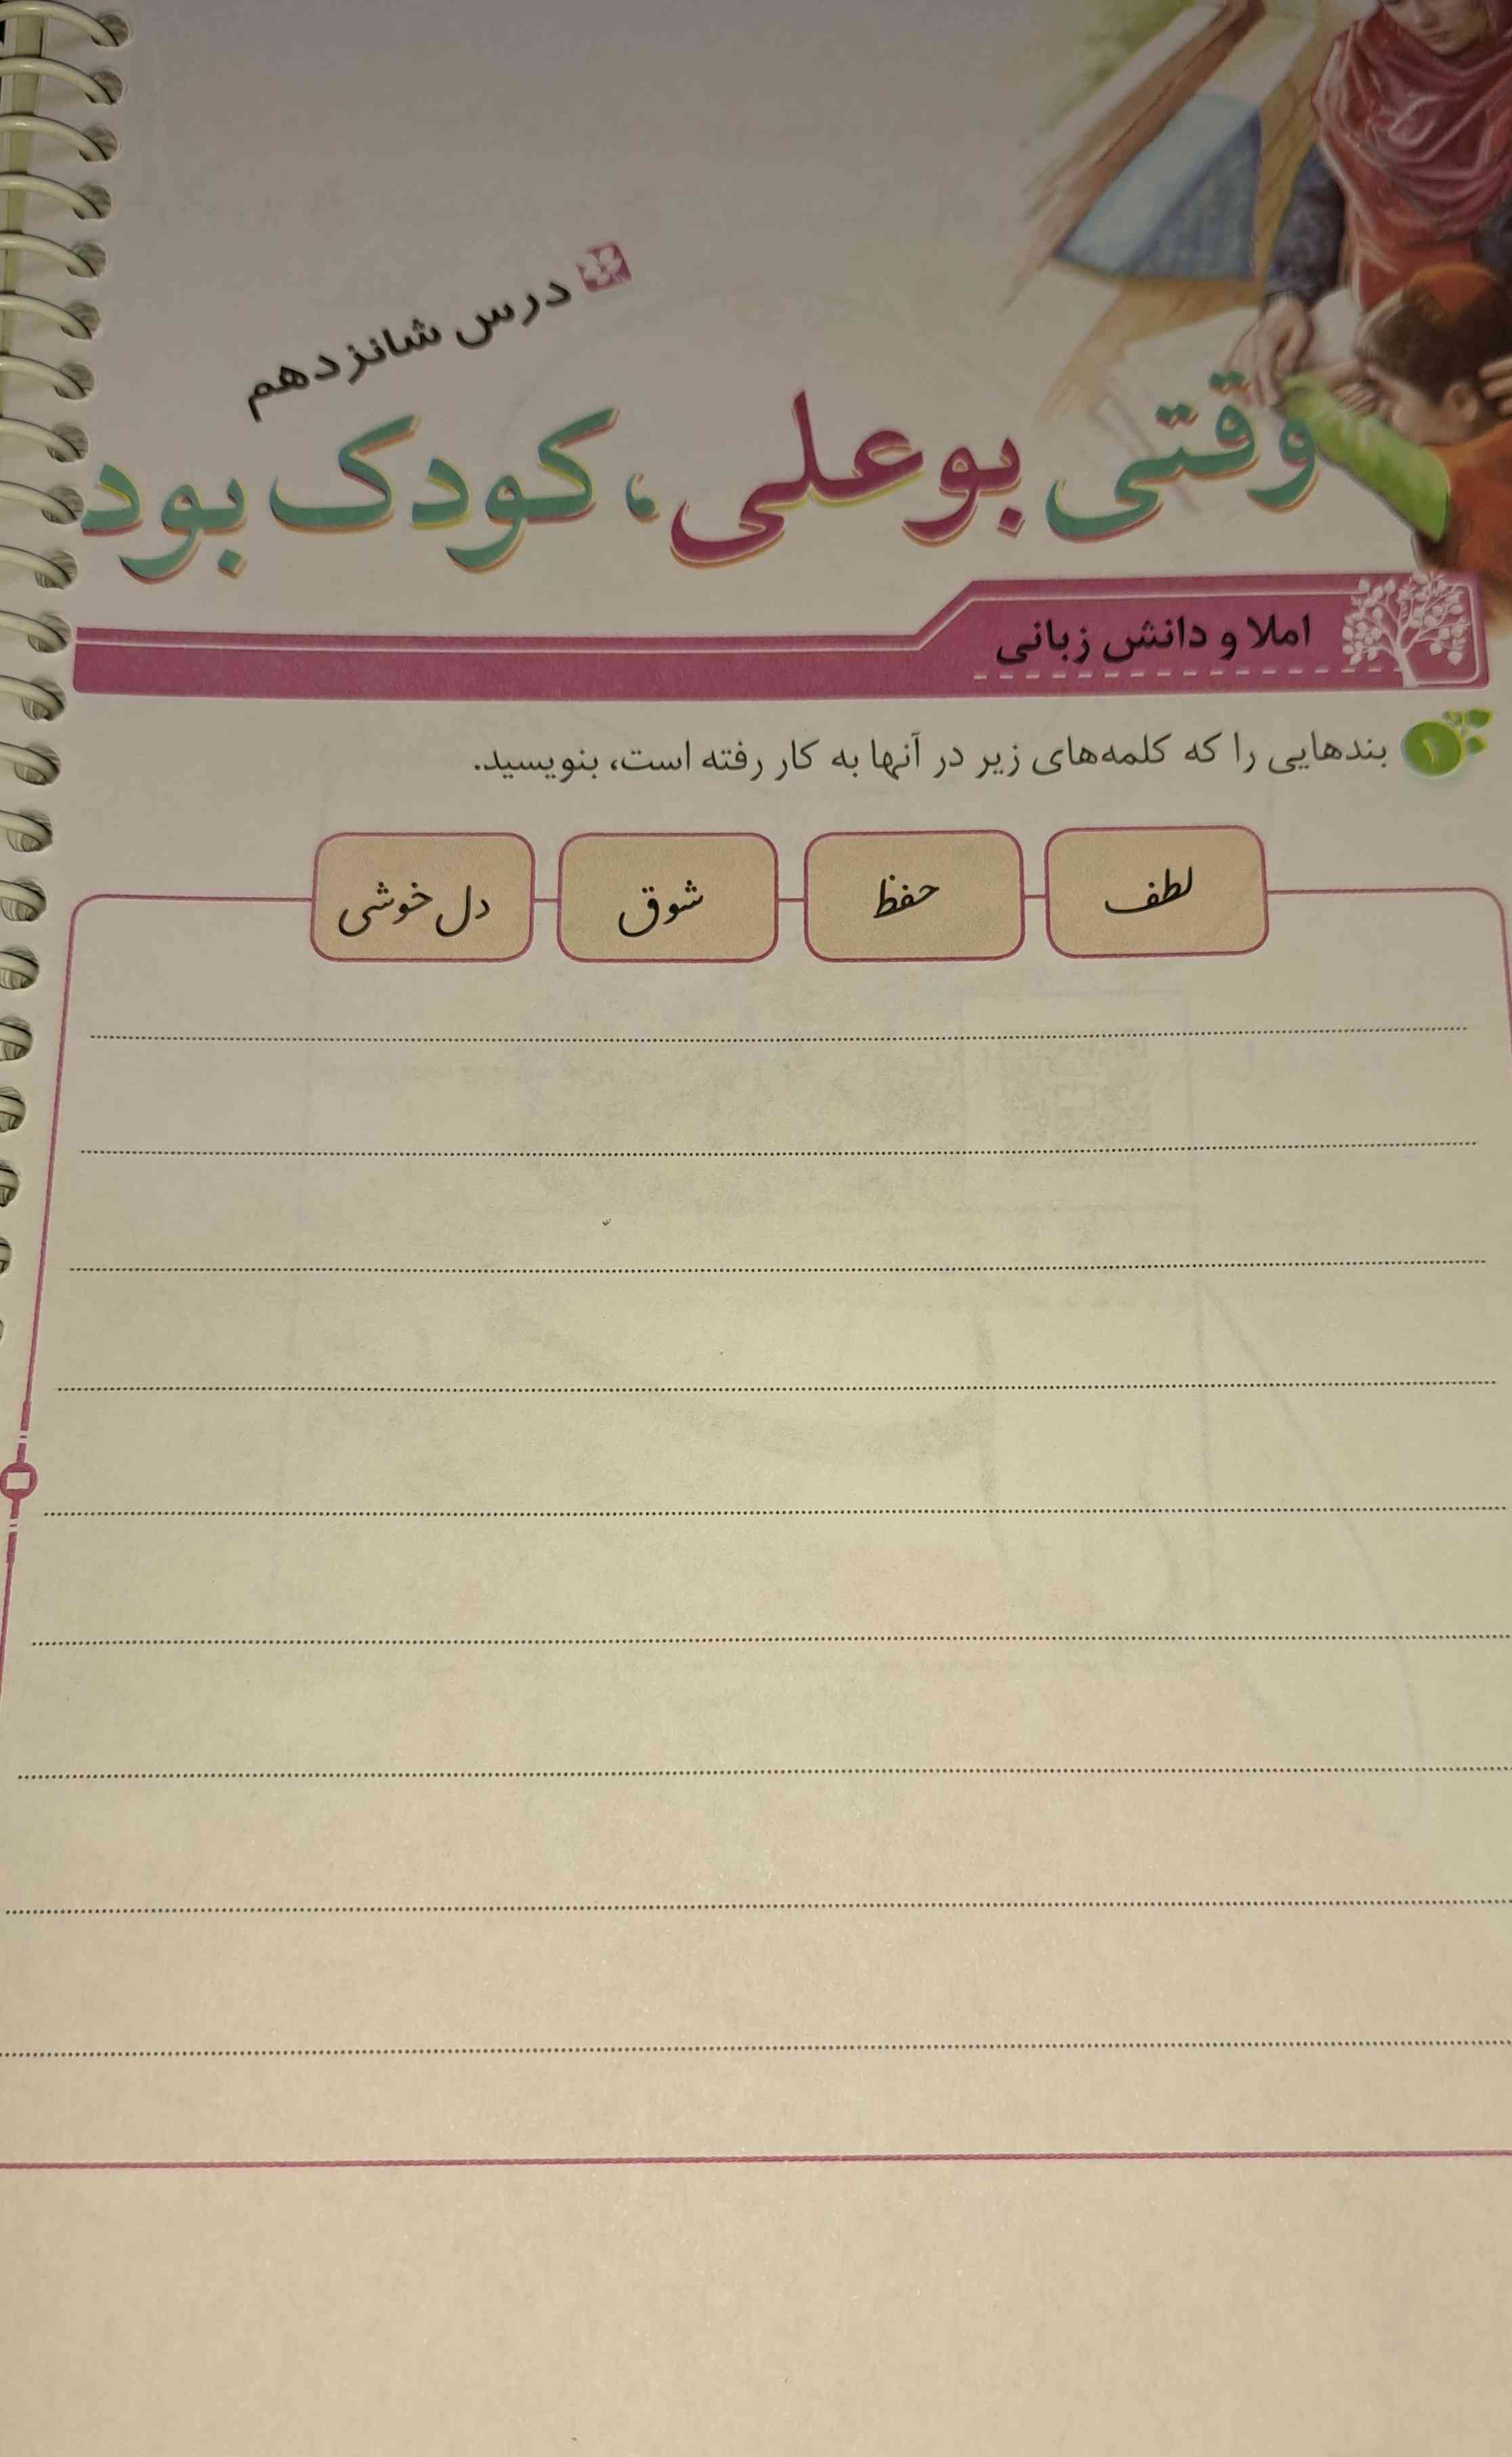 درس شانزدهم
وقتی بوعلی، کودک بود
املا و دانش زبانی
۱ بندهایی را که کلمه‌های زیر در آنها به کار رفته است، بنویسید.
لطف حفظ شوق دل خوشی